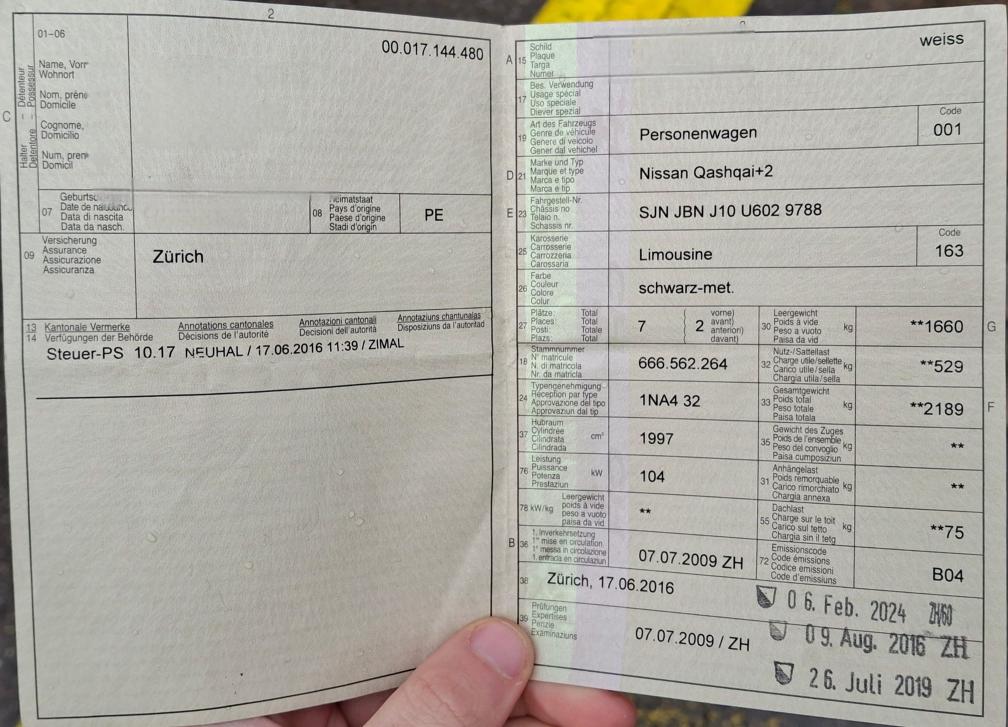 2
01-06
00.017.144.480
C
Halter - Détenteur
Detentore - Possessur
Name, Vorr
Wohnort
Nom, préno
Domicile
Cognome,
Domicilio
Num, pren
Domicil
07
Geburtsd
Date de naissanc
Data di nascita
Data da nasch.
08
Heimatstaat
Pays d'origine
Paese d'origine
Stadi d'origin
PE
09
Versicherung
Assurance
Assicurazione
Assicuranza
Zürich
13
14
Kantonale Vermerke
Verfügungen der Behörde
Annotations cantonales
Décisions de l'autorité
Annotazioni cantonali
Decisioni dell'autorità
Annotaziuns chantunalas
Disposiziuns da l'autoritad
Steuer-PS 10.17 NEUHAL / 17.06.2016 11:39 / ZIMAL
A
15
Schild
Plaque
Targa
Numer
weiss
17
Bes. Verwendung
Usage spécial
Uso speciale
Diever spezial
19
Art des Fahrzeugs
Genre de véhicule
Genere di veicolo
Gener dal vehichel
Personenwagen
Code
001
D
21
Marke und Typ
Marque et type
Marca e tipo
Marca e tip
Nissan Qashqai+2
E
23
Fahrgestell-Nr.
Châssis no
Telaio n.
Schassis nr.
SJN JBN J10 U602 9788
25
Karosserie
Carrosserie
Carrozzeria
Carossaria
Limousine
Code
163
26
Farbe
Couleur
Colore
Colur
schwarz-met.
27
Plätze: Total
Places: Total
Posti: Totale
Plazs: Totale
7
( 2 vorne)
avant)
anteriori)
davant)
30
Leergewicht
Poids à vide
Peso a vuoto
Paisa da vid
kg
**1660
G
18
Stammnummer
N° matricule
N. di matricola
Nr. da matricla
666.562.264
32
Nutz-/Sattellast
Charge utile/sellette
Carico utile/sella
Chargia utila/sella
kg
**529
24
Typengenehmigung
Réception par type
Approvazione del tipo
Approvaziun dal tip
1NA4 32
33
Gesamtgewicht
Poids total
Peso totale
Paisa totala
kg
**2189
F
37
Hubraum
Cylindrée
Cilindrata
Cilindrada
cm³
1997
35
Gewicht des Zuges
Poids de l'ensemble
Peso del convoglio
Paisa cumposiziun
kg
**
76
Leistung
Puissance
Potenza
Prestaziun
kW
104
31
Anhängelast
Poids remorquable
Carico rimorchiato
Chargia annexa
kg
**
78 kW/kg
Leergewicht
poids à vide
peso a vuoto
paisa da vid
**
55
Dachlast
Charge sur le toit
Carico sul tetto
Chargia sin il tetg
kg
**75
B
36
1. Inverkehrsetzung
1re mise en circulation
1a messa in circolazione
1. entrada en circulaziun
07.07.2009 ZH
72
Emissionscode
Code émissions
Codice emissioni
Code d'emissiuns
B04
38
Zürich, 17.06.2016
06. Feb. 2024 ZH60
39
Prüfungen
Expertises
Perizie
Examinaziuns
07.07.2009 / ZH
09. Aug. 2016 ZH
26. Juli 2019 ZH